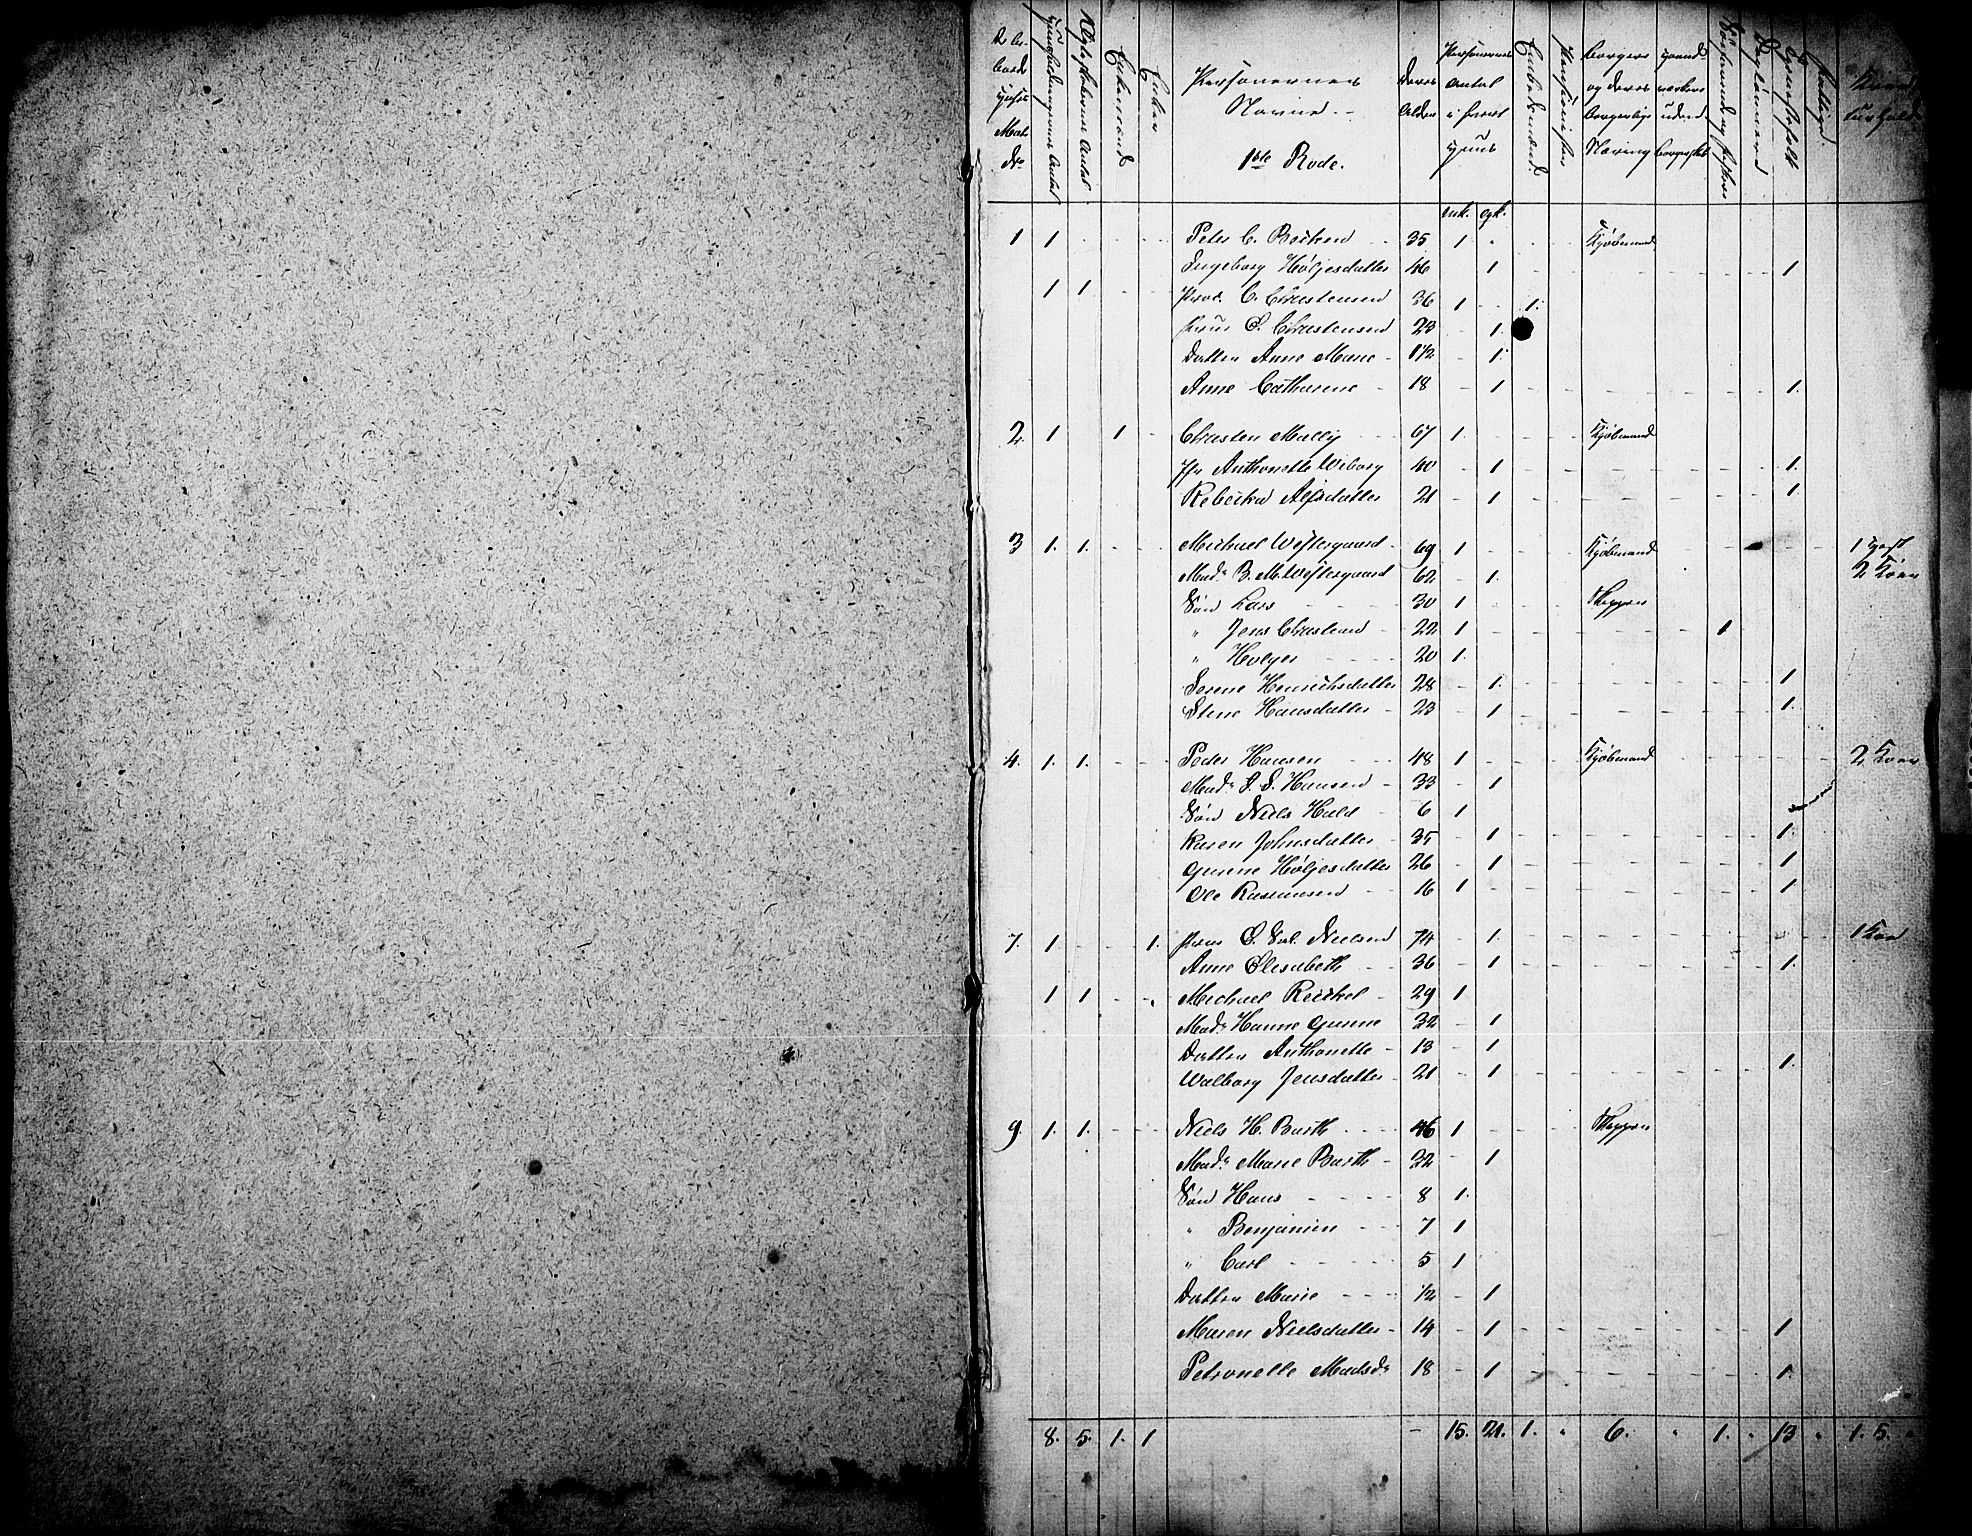 Huusholdningernes Antal
Ægteskabernes Antal
Enkemænd
Enker
Personernes Navne
1ste Rode.
Deres Alder
Personernes Antal i hvert Huus
Embedsmænd
Pensionister
Borgere og deres borgerlige Næring
Dagleiere
Tyenestefolk
mk. qk.
1 1 Peter C. Beichen 35 1 Kjøbmand
Ingeborg Høljesdatter 46 1 1
1 1 Prov. C. Christensen 36 1 1.
Frue S. Christensen 23 1.
Datter Anne Marie 1 1/2 1.
Anne Cathrine 18 1 1.
2. 1 1 Christen Mally 67 1. Kjøbmand
Jfr Anthonette Wiborg 40 1 1.
Rebecka Alfsdatter 21 1 1.
3 1. 1. Michael Westergaard 69 1 Kjøbmand 1 Hest
Mad. B. M. Westergaard 62 1. 2 Køer
Søn Lars 30 1 Skipper
" Jens Christian 22 1 1
" Holger 20 1.
Serene Henrichsdatter 28 1. 1
Stine Hansdatter 23 1 1.
4. 1. 1. Peder Hansen 48 1 Kjøbmand 2 Køer
Mad. S. S. Hansen 33 1
Søn Niels Hald 6 1
Karen Johnsdatter 35 1 1.
Gunne Høljesdatter 26 1 1
Ole Rasmusen 16 1 1
7. 1 1. Frue S. Sal. Nielsen 74 1. 1 Koe
Anne Elisabeth 36 1 1.
1 1 Michael Reichel 29 1
Mad. Hanne Gunne 32 1
Datter Anthonette 13 1
Walborg Jensdatter 21 1 1.
9 1. 1. Niels H. Barth 46 1 Skipper
Mad. Marie Barth 22 1
Søn Hans 8 1.
" Benjamin 7 1
" Carl 5 1
Datter Marie 1/2 1
Maren Nielsdatter 14 1 1
Petronelle Madsd. 18 1 1
8. 5. 1. 1 15. 21. 1. 6. 1. 13 1. 5.